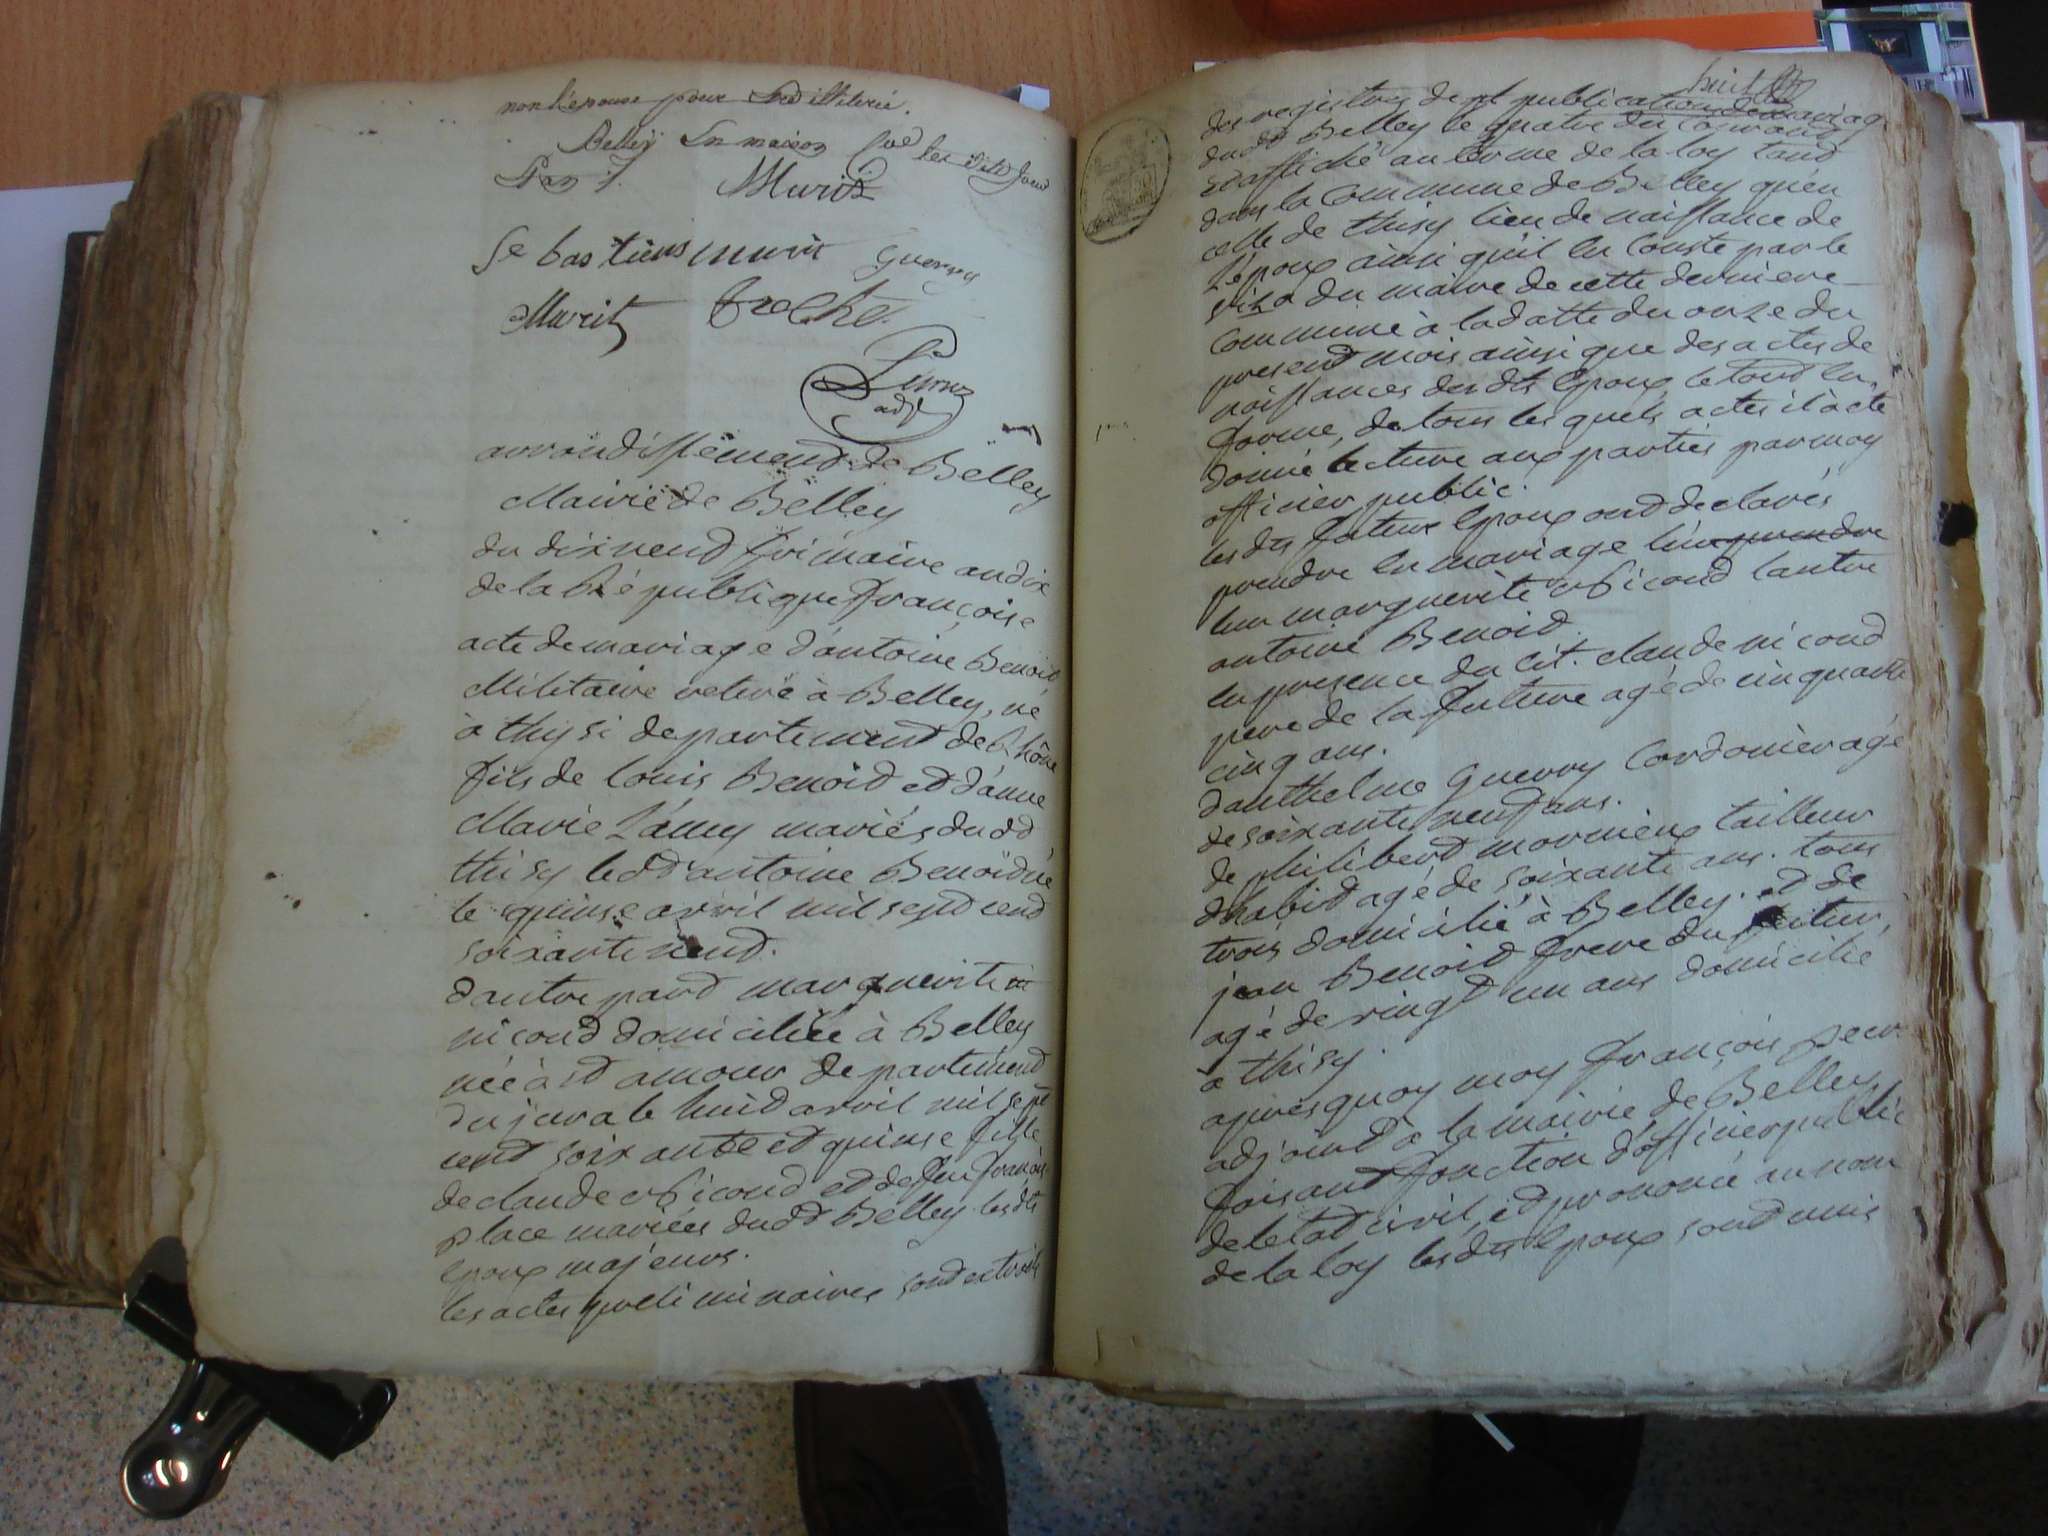 non l'épouse pour être illiterée.
Belley En maison les dits jour
Murit
Sebastiens murit Guerry
Murit
adj
arrondissement de Belley
Mairie de Belley
du dix neud frimaire an dix
de la République françoise
acte de mariage d'antoine Benoit
Militaire retiré à Belley, né
à thysi departement de Rhône
fils de louis Benoid et d'anne
Marie Lámy mariés dudd
thisy ledd antoine Benoid né
le quinse avril mil sept cend
soixante neud.
dautre pard marguerite ni
nicoud domiciliée à Belley
née à st amour departement
du jura le huid avril mil sept
cend soixante et quinse fille
de claude Nicoud et de feu françoise
place mariés dudd Belley lesdts
Epoux majeurs.
les actes preliminaires sond extraits
huit
des registres de publication de mariage
dudd Belley le quatre du courand
et affiché au terme de la loy tand
dans la Commune de Belley qu'en
celle de thisy lieu de naissance de
L'époux ainsi qu'il en Conste par le
visa du maire de cette derniere
Commune à la datte du onze du
presend mois ainsi que des actes de
naissances des dts Epoux, le toud En
forme, de tous les quels actes il à été
donné lecture aux parties par moy
officier public.
les dts futurs Epoux ond declarés
prendre En mariage l'un prendre
l'un marguerite Nicoud lautre
antoine Benoid.
En presence du Cit. claude nicoud
pere de la future agé de cinquante
cinq ans.
danthelme Guerry Cordonier agé
de soixante neuf ans.
de philiberd mornieux tailleur
dhabid agé de soixante ans. tous
trois domicilié à Belley. et de
jean Benoid frere du futur,
agé de vingt un ans domicilié
à thisy.
apres quoy moy françois
adjoind à la mairie de Belley,
faisant fonction d'officier public
de letad civil, et prononcé au nom
de la loy les dts Epoux sond unis